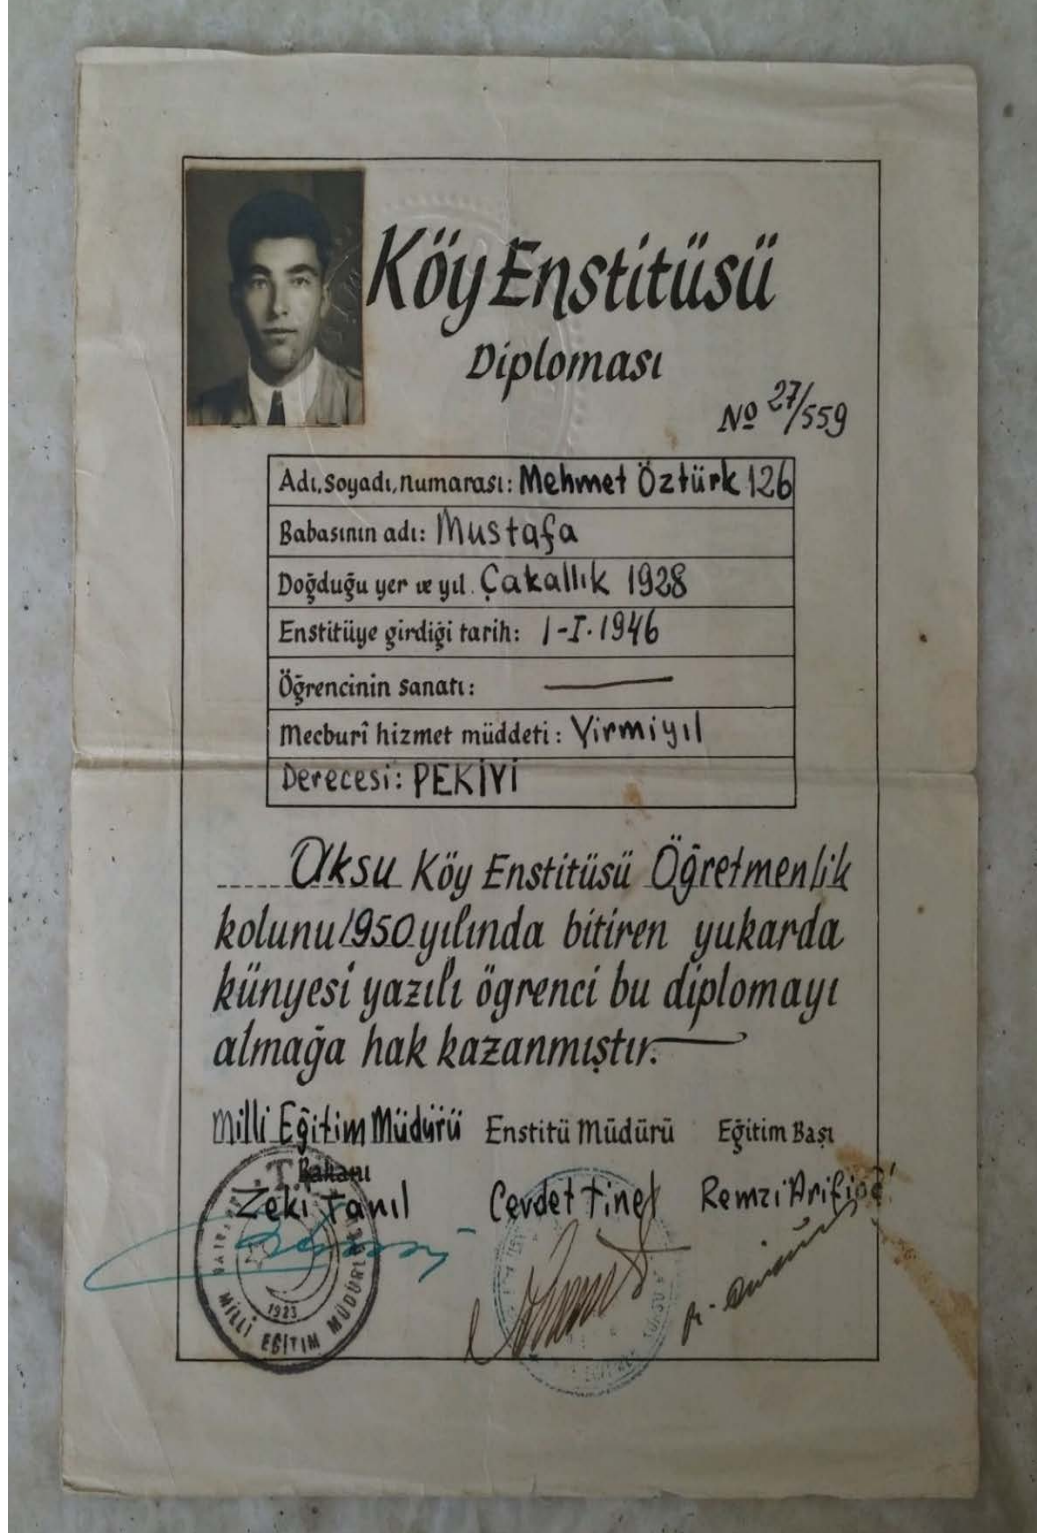 Köy Enstitüsü
Diploması
Nº 27/559
Adı, Soyadı, numarası: Mehmet Öztürk 126
Babasının adı: Mustafa
Doğduğu yer ve yıl. Çakallık 1928
Enstitüye girdiği tarih: 1-I-1946
Öğrencinin sanatı: —
Mecburî hizmet müddeti: Yirmiyıl
Derecesi: PEKİYİ
Aksu Köy Enstitüsü Öğretmenlik
kolunu 1950 yılında bitiren yukarda
künyesi yazılı öğrenci bu diplomayı
almağa hak kazanmıştır.
Milli Eğitim Müdürü Enstitü Müdürü Eğitim Başı
Bakanı
Zeki Tanıl Cevdet Tinel Remzi
T.
1923
MİLLİ EĞİTİM